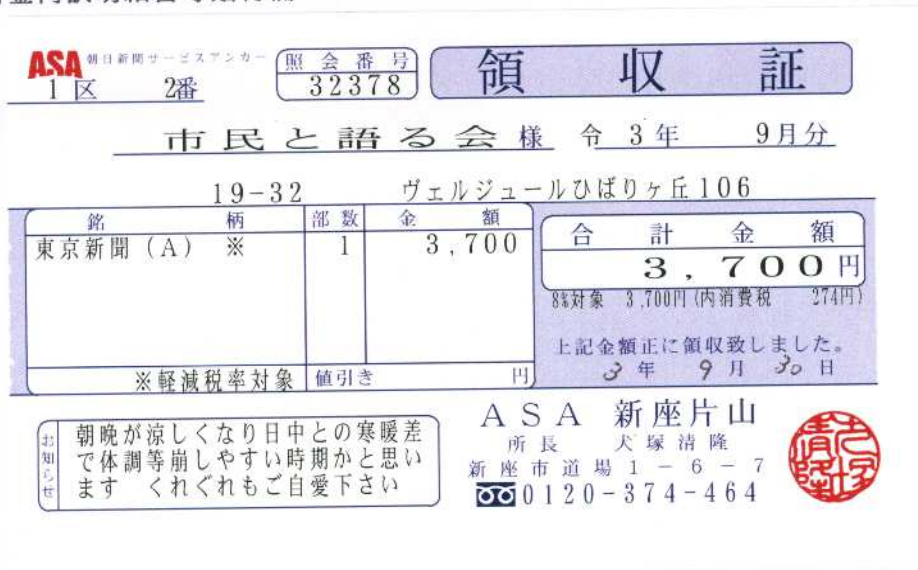 ASA 朝日新聞サービスアンカー
照会番号
32378
領収証
1区 2番
市民と語る会 様 令 3年 9月分
19-32 ヴェルジュールひばりヶ丘106
銘柄 部数 金額
東京新聞(A) ※ 1 3,700
合計金額
3,700円
8%対象 3,700円(内消費税 274円)
上記金額正に領収致しました。
3年 9月 30日
※軽減税率対象 値引き 円
お知らせ
朝晩が涼しくなり日中との寒暖差
で体調等崩しやすい時期かと思い
ます くれぐれもご自愛下さい
ASA 新座片山
所長 犬塚清隆
新座市道場1-6-7
0120-374-464
犬塚清隆